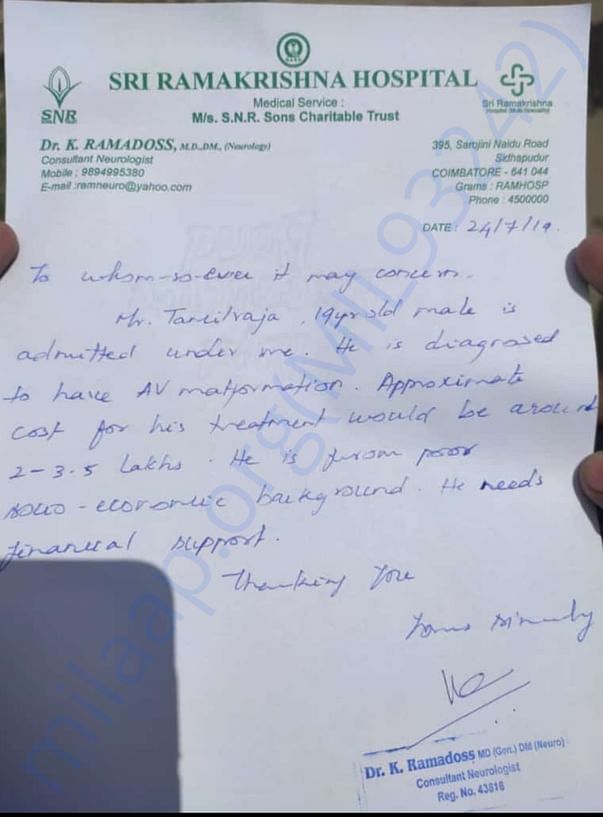 SRI RAMAKRISHNA HOSPITAL
Medical Service :
M/s. S.N.R. Sons Charitable Trust
SNR
Sri Ramakrishna
Dr. K. RAMADOSS, M.D.,DM., (Neurology)
Consultant Neurologist
Mobile : 9894995380
E-mail :ramneuro@yahoo.com
395, Sarojini Naidu Road
Sidhapudur
COIMBATORE - 641 044
Grams : RAMHOSP
Phone : 4500000
DATE : 24/7/19.
To whom-so-ever it may concern.
Mr. Tamilraja, 19yr old male is
admitted under me. He is diagnosed
to have AV malformation. Approximate
cost for his treatment would be around
2-3.5 Lakhs. He is from poor
socio-economic background. He needs
financial support.
Thanking You
Yours sincerely
Dr. K. Ramadoss MD (Gen.) DM (Neuro)
Consultant Neurologist
Reg. No. 43816
milaap.org(MIL_93242)